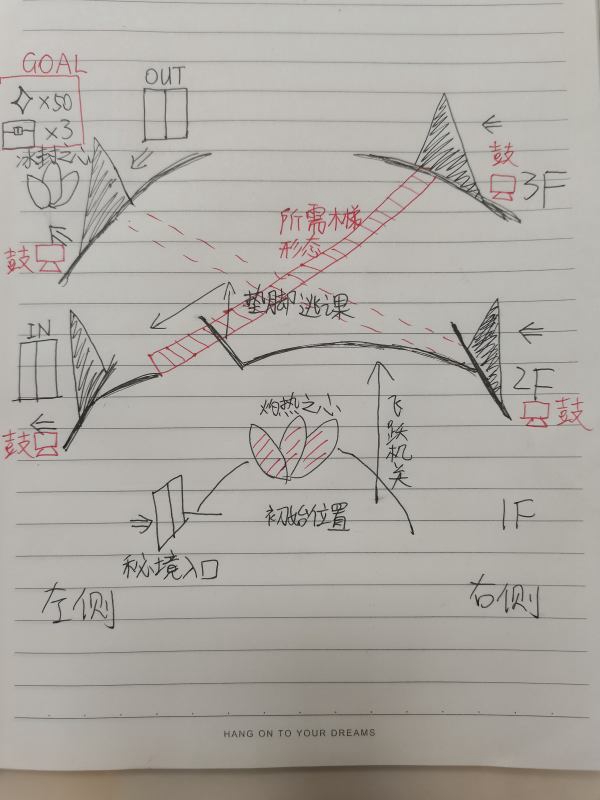 GOAL
×50
×3
冰封之心
OUT
鼓
鼓
3F
所需木梯
形态
垫脚逃课
IN
鼓
2F
鼓
灼热之心
飞跃机关
初始位置
1F
秘境入口
左侧
右侧
HANG ON TO YOUR DREAMS